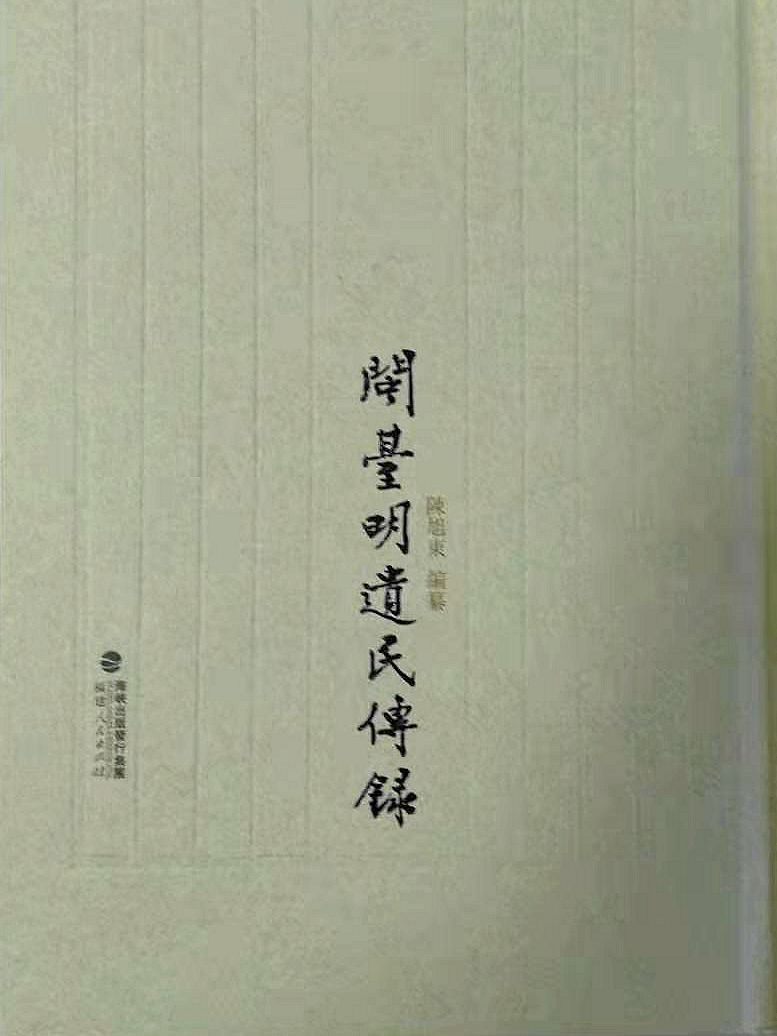 陳旭東 編纂
閩臺明遺民傳錄
海峽出版發行集團
福建人民出版社